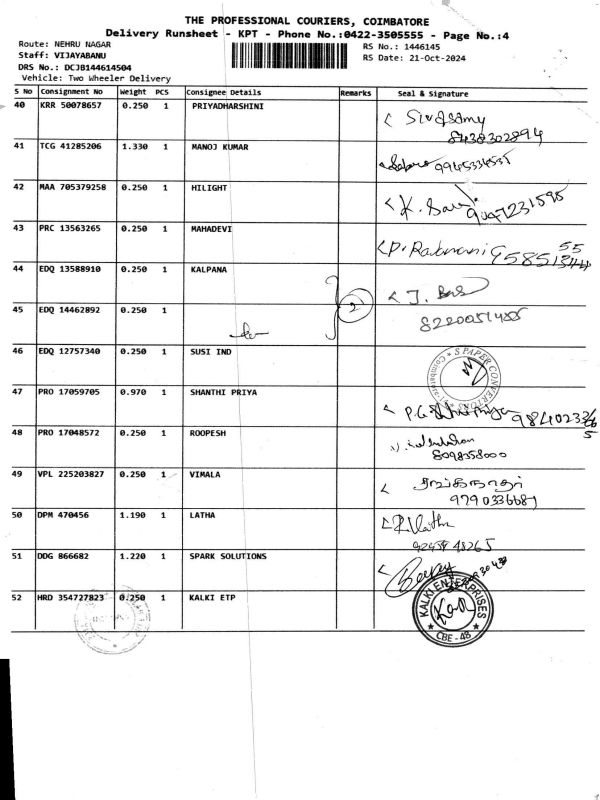 THE PROFESSIONAL COURIERS, COIMBATORE
Delivery Runsheet - KPT - Phone No.:0422-3505555 - Page No.:4
Route: NEHRU NAGAR
RS No.: 1446145
Staff: VIJAYABANU
RS Date: 21-Oct-2024
DRS No.: DCJB144614504
Vehicle: Two Wheeler Delivery
S No Consignment No Weight PCS Consignee Details Remarks Seal & Signature
40 KRR 50078657 0.250 1 PRIYADHARSHINI
8438302894
41 TCG 41285206 1.330 1 MANOJ KUMAR
9945334535
42 MAA 705379258 0.250 1 HILIGHT
K.
43 PRC 13563265 0.250 1 MAHADEVI
44 EDQ 13588910 0.250 1 KALPANA
J.
45 EDQ 14462892 0.250 1
2
46 EDQ 12757340 0.250 1 SUSI IND
S PAPER CONVERTORS
47 PRO 17059705 0.970 1 SHANTHI PRIYA
48 PRO 17048572 0.250 1 ROOPESH
8098358000
49 VPL 225203827 0.250 1 VIMALA
ரங்கநாதர்
50 DPM 470456 1.190 1 LATHA
R. Latha
51 DDG 866682 1.220 1 SPARK SOLUTIONS
52 HRD 354727823 0.250 1 KALKI ETP
KALKI ENTERPRISES
CBE - 48